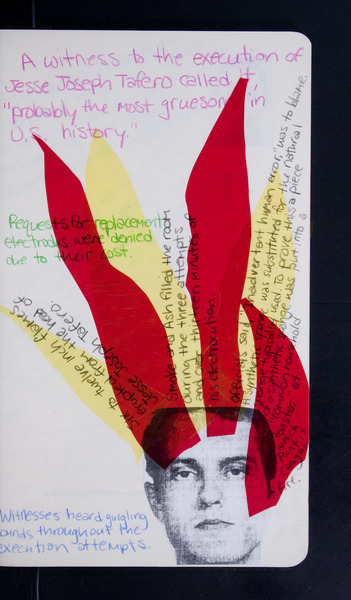 A witness to the execution of
Jesse Joseph Tafero called it,
"probably the most gruesome in
U.S. history."
Requests for replacement
electrodes were denied
due to their cost.
Six to twelve inch flames
erupted from the head of
Jesse Joseph Tafero.
Smoke and Ash filled the room
during the three attempts
and over thirteen minutes of
his electrocution.
Officials said "inadvertent human error," was to blame.
A synthetic sponge was substituted for the natural
sponge typically used to prove this a piece
of a synthetic sponge was put into a
common household
toaster at
Witnesses heard gurgling
sounds throughout the
execution attempts.